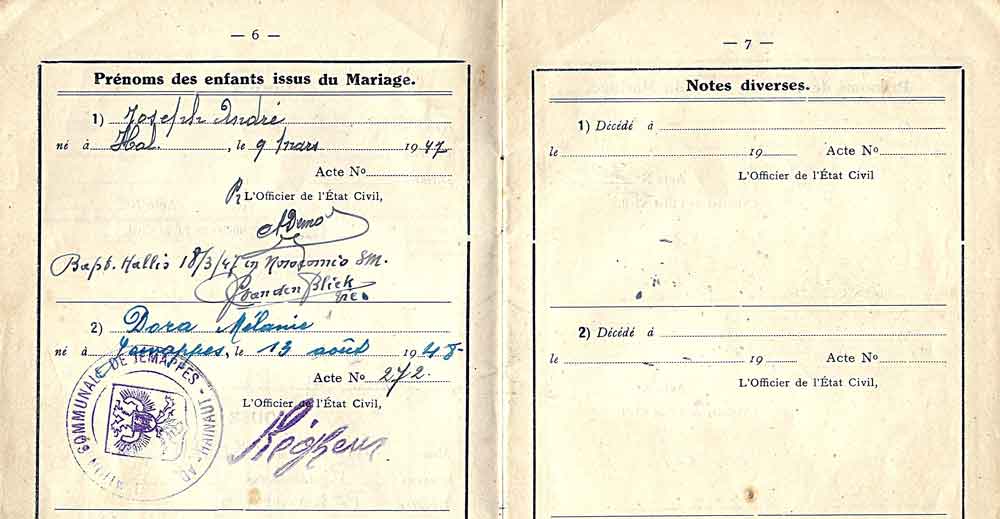 — 6 —
Prénoms des enfants issus du Mariage.
1) Joseph André
né à Hal, le 9 mars 1947
Acte No
Pr L'Officier de l'État Civil,
Bapt. Hallis 18/3/47 in Nosocomio SM.
Vanden Bliek
2) Dora Mélanie
né à Jemappes, le 13 août 1948
Acte No 272.
L'Officier de l'État Civil,
COMMUNALE DE JEMAPPES - HAINAUT
— 7 —
Notes diverses.
1) Décédé à
le 19 Acte No
L'Officier de l'État Civil
2) Décédé à
le 19 Acte No
L'Officier de l'État Civil,